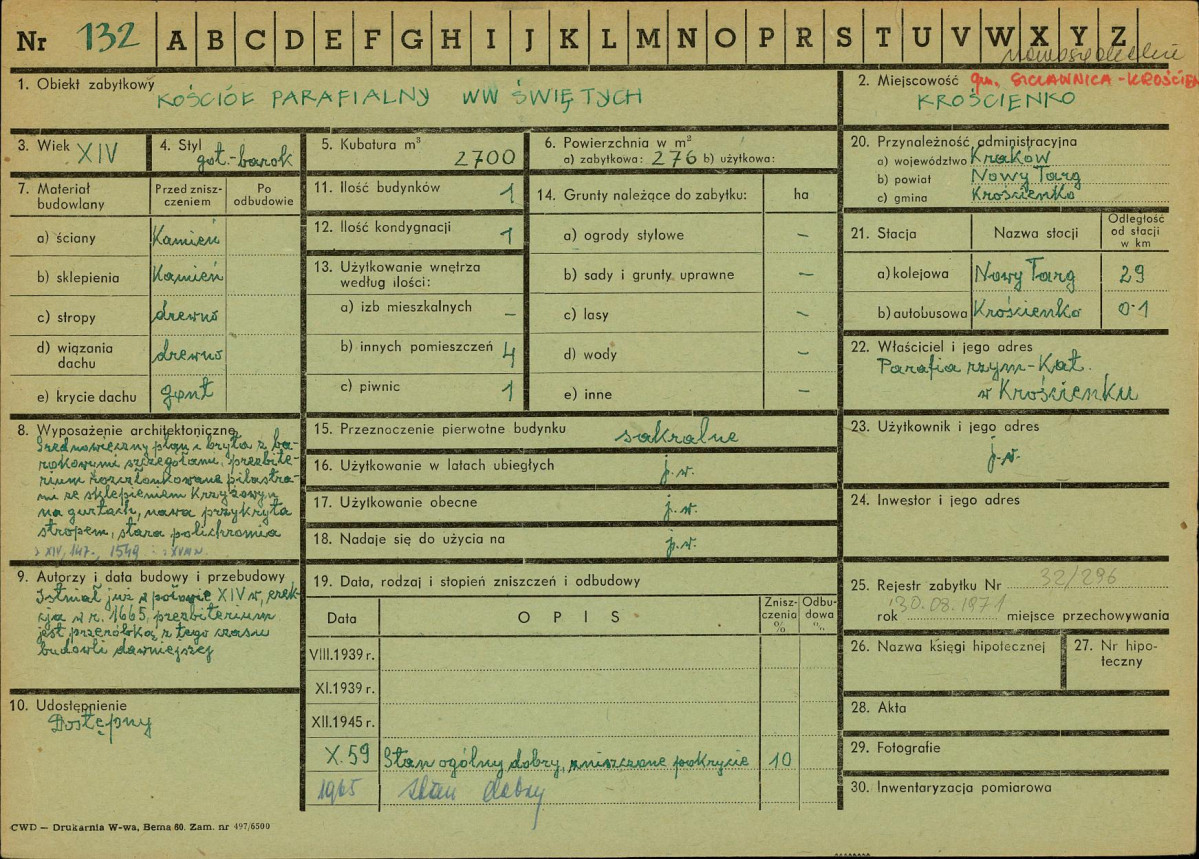 Nr 132 A B C D E F G H I J K L M N O P R S T U V W X Y Z
nowosądeckie
1. Obiekt zabytkowy
KOŚCIÓŁ PARAFIALNY WW ŚWIĘTYCH
2. Miejscowość gm. SZCZAWNICA-KROŚCIEN
KROŚCIENKO
3. Wiek XIV
4. Styl
got.-barok
5. Kubatura m³
2700
6. Powierzchnia w m²
a) zabytkowa: 276 b) użytkowa:
20. Przynależność administracyjna
a) województwo Kraków
b) powiat Nowy Targ
c) gmina Krościenko
7. Materiał budowlany
Przed znisz-
czeniem
Po
odbudowie
a) ściany Kamień
b) sklepienia Kamień
c) stropy drewno
d) wiązania
dachu drewno
e) krycie dachu gont
11. Ilość budynków 1
12. Ilość kondygnacji 1
13. Użytkowanie wnętrza
według ilości:
a) izb mieszkalnych –
b) innych pomieszczeń 4
c) piwnic 1
14. Grunty należące do zabytku: ha
a) ogrody stylowe –
b) sady i grunty uprawne –
c) lasy –
d) wody –
e) inne –
21. Stacja Nazwa stacji
Odległość
od stacji
w km
a) kolejowa Nowy Targ 29
b) autobusowa Krościenko 0·1
22. Właściciel i jego adres
Parafia rzym-Kat.
w Krościenku
8. Wyposażenie architektoniczne
Średniowieczny plan i bryła z ba-
rokowymi szczegółami, prezbite-
rium rozczłonkowane pilastra-
mi ze sklepieniem Krzyżowym
na gurtach, nawa przykryta
stropem, stara polichromia
z XIV, 147., 1549 XVIII w.
15. Przeznaczenie pierwotne budynku sakralne
16. Użytkowanie w latach ubiegłych j.w.
17. Użytkowanie obecne j.w.
18. Nadaje się do użycia na j.w.
23. Użytkownik i jego adres
j.w.
24. Inwestor i jego adres
9. Autorzy i data budowy i przebudowy
Istniał już z połowie XIV w, erek-
cja w r. 1665, prezbiterium
jest przeróbką z tego czasu
budowli dawniejszej
10. Udostępnienie
Dostępny
19. Data, rodzaj i stopień zniszczeń i odbudowy
Data OPIS
Znisz-
czenia
%
Odbu-
dowa
%
VIII.1939 r.
XI.1939 r.
XII.1945 r.
X.59 Stan ogólny dobry, zniszczone pokrycie 10
1965 stan dobry
25. Rejestr zabytku Nr 32/296
30.08.1971
rok miejsce przechowywania
26. Nazwa księgi hipotecznej
27. Nr hipo-
teczny
28. Akta
29. Fotografie
30. Inwentaryzacja pomiarowa
CWD — Drukarnia W-wa, Bema 60. Zam. nr 497/6500